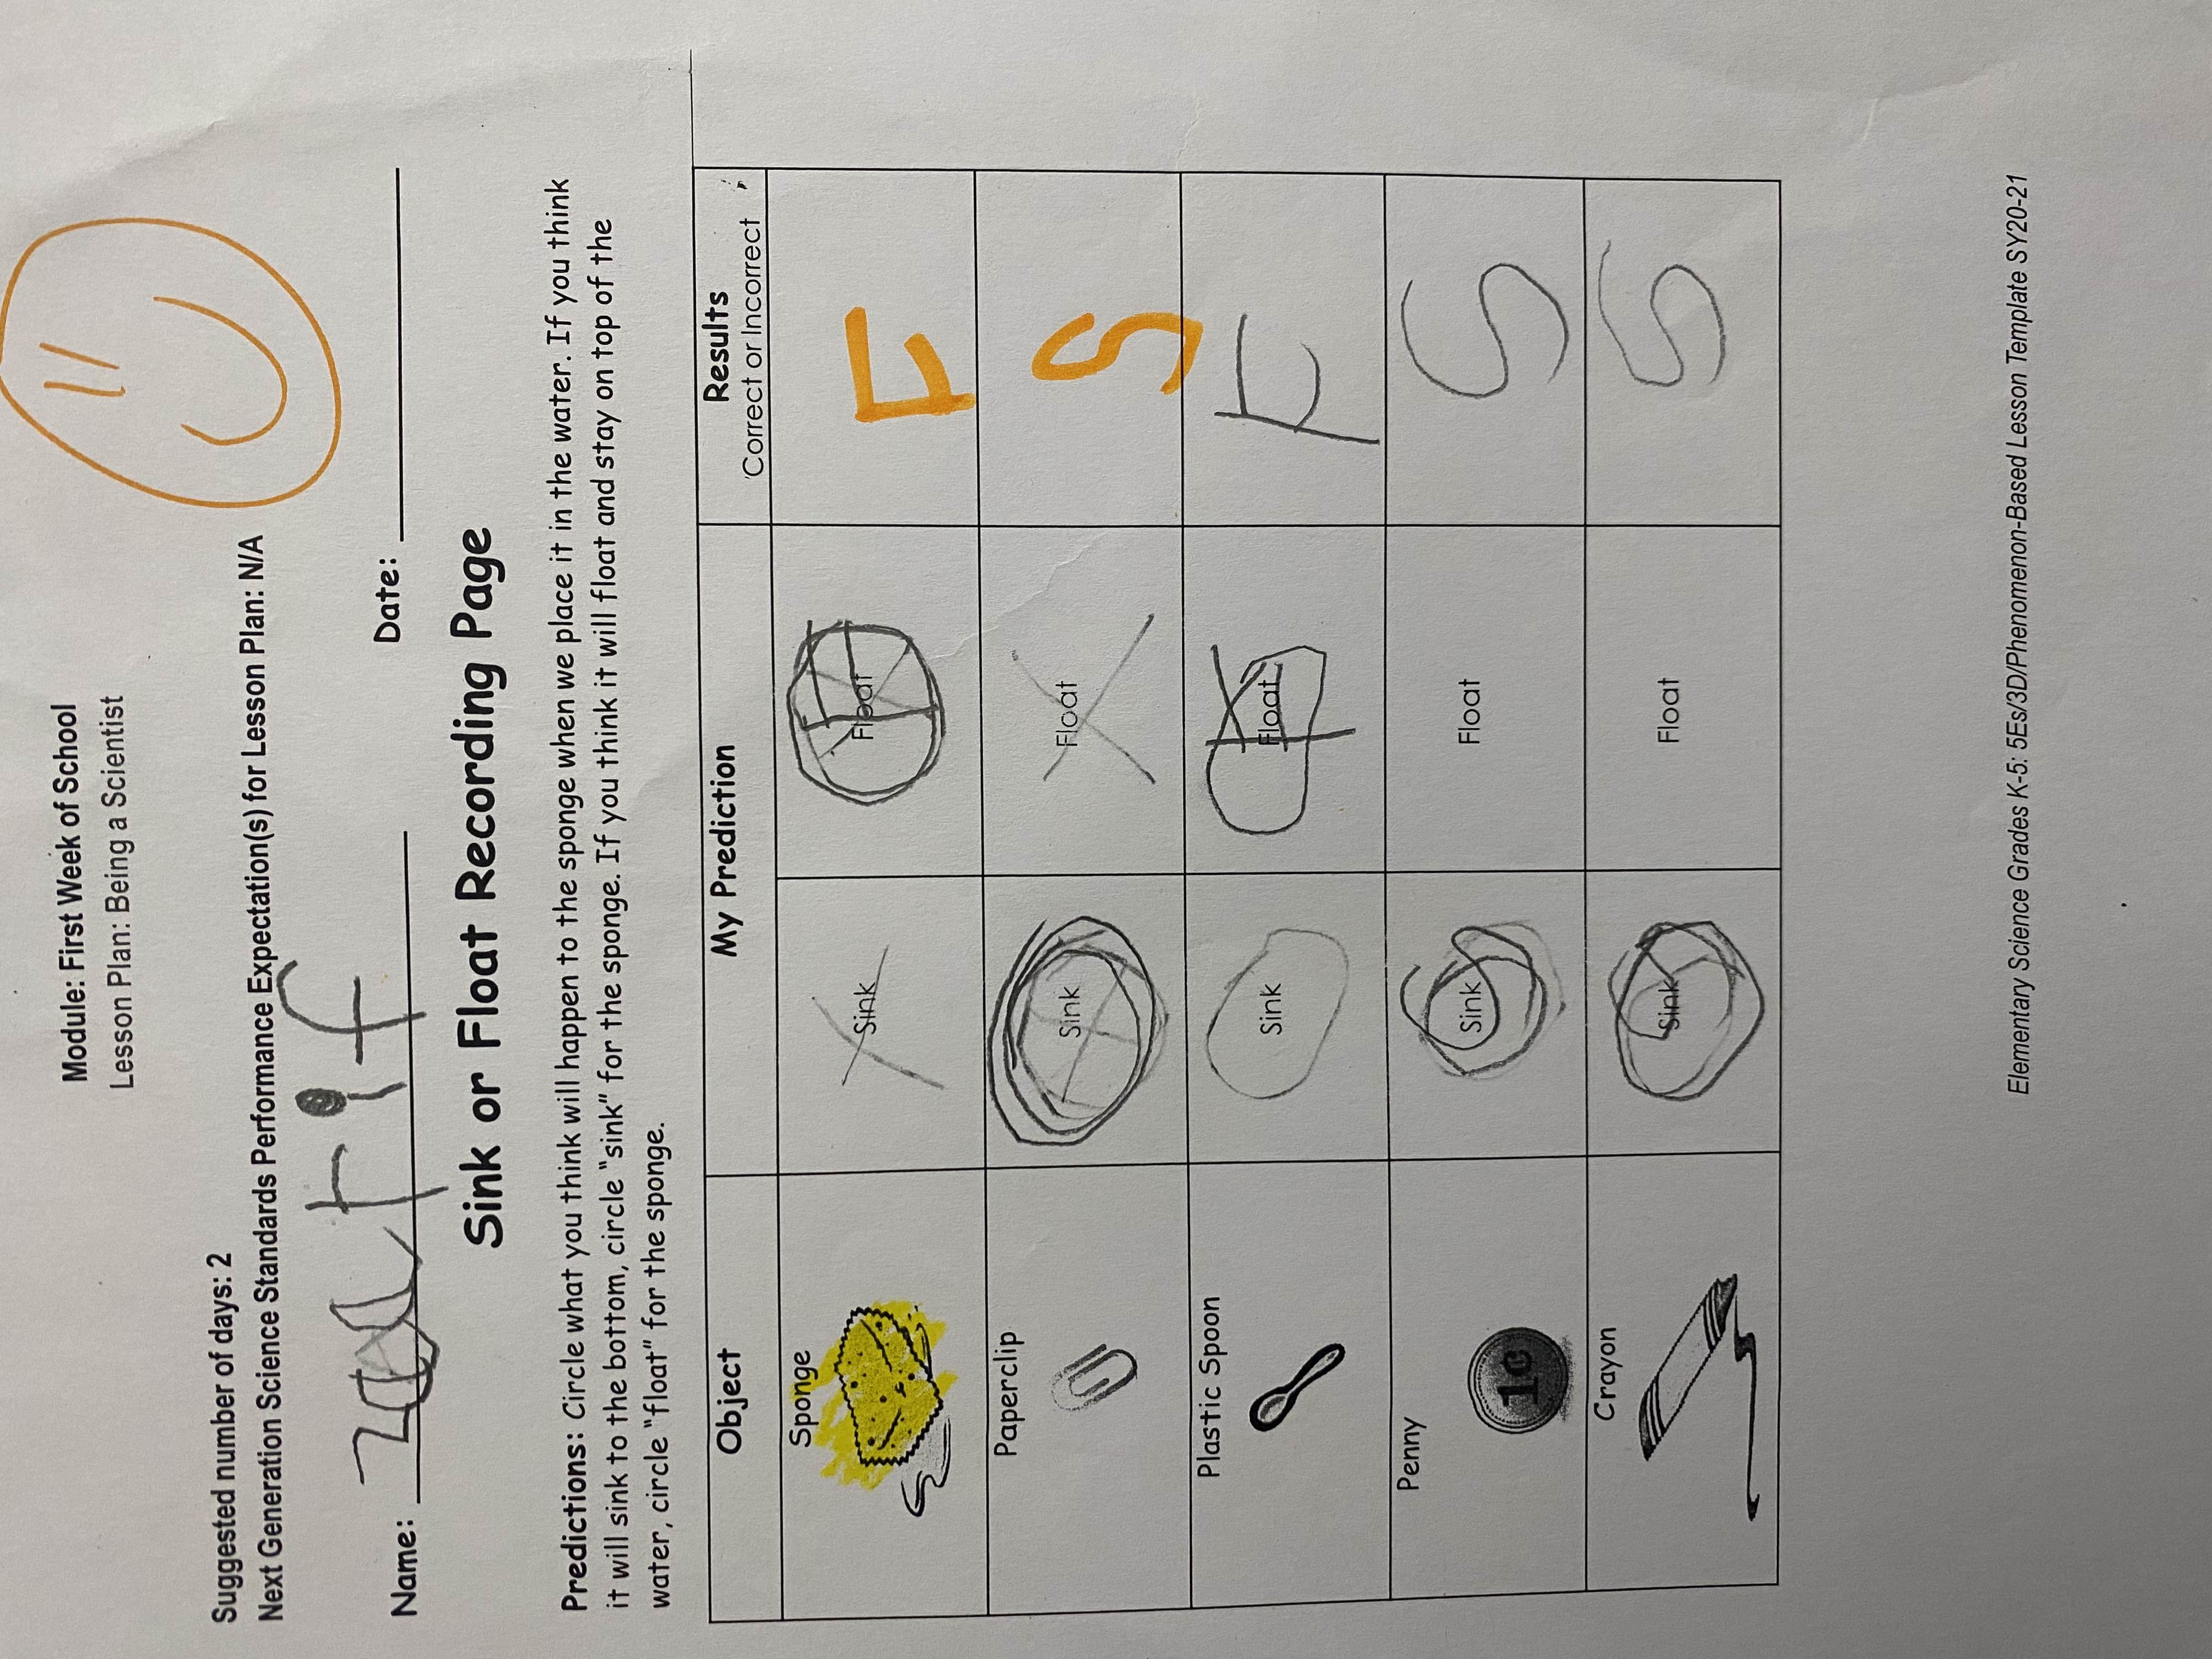 Module: First Week of School
Lesson Plan: Being a Scientist
Suggested number of days: 2
Next Generation Science Standards Performance Expectation(s) for Lesson Plan: N/A
Name: Date:
Sink or Float Recording Page
Predictions: Circle what you think will happen to the sponge when we place it in the water. If you think
it will sink to the bottom, circle "sink" for the sponge. If you think it will float and stay on top of the
water, circle "float" for the sponge.
Object My Prediction Results
Correct or Incorrect
Sponge
Sink Float F
Paperclip
Sink Float S
Plastic Spoon
Sink Float F
Penny
Sink Float S
1¢
Crayon
Sink Float S
Elementary Science Grades K-5: 5Es/3D/Phenomenon-Based Lesson Template SY20-21